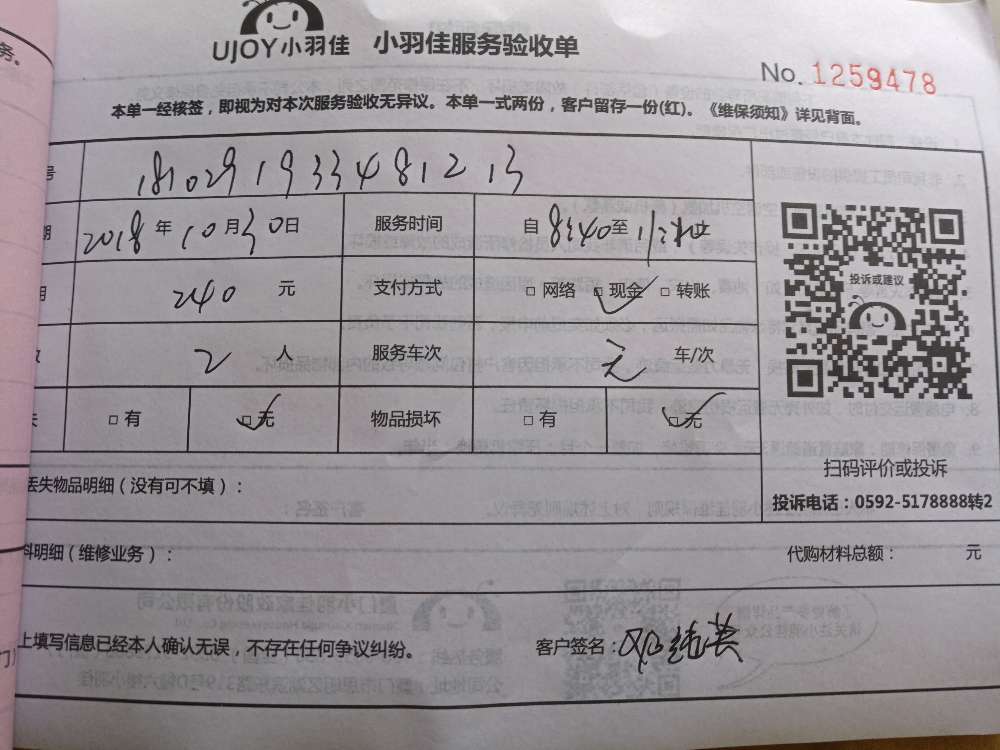 UJOY小羽佳 小羽佳服务验收单
No. 1259478
本单一经核签，即视为对本次服务验收无异议。本单一式两份，客户留存一份(红)。《维保须知》详见背面。
号 18102919334812 13
期 2018年10月30日 服务时间 自8:40至
240 元 支付方式 □ 网络 □ 现金 □ 转账
2 人 服务车次 车/次
□ 有 □ 无 物品损坏 □ 有 □ 无
投诉或建议
扫码评价或投诉
投诉电话：0592-5178888转2
丢失物品明细（没有可不填）：
料明细（维修业务）： 代购材料总额： 元
上填写信息已经本人确认无误，不存在任何争议纠纷。 客户签名：